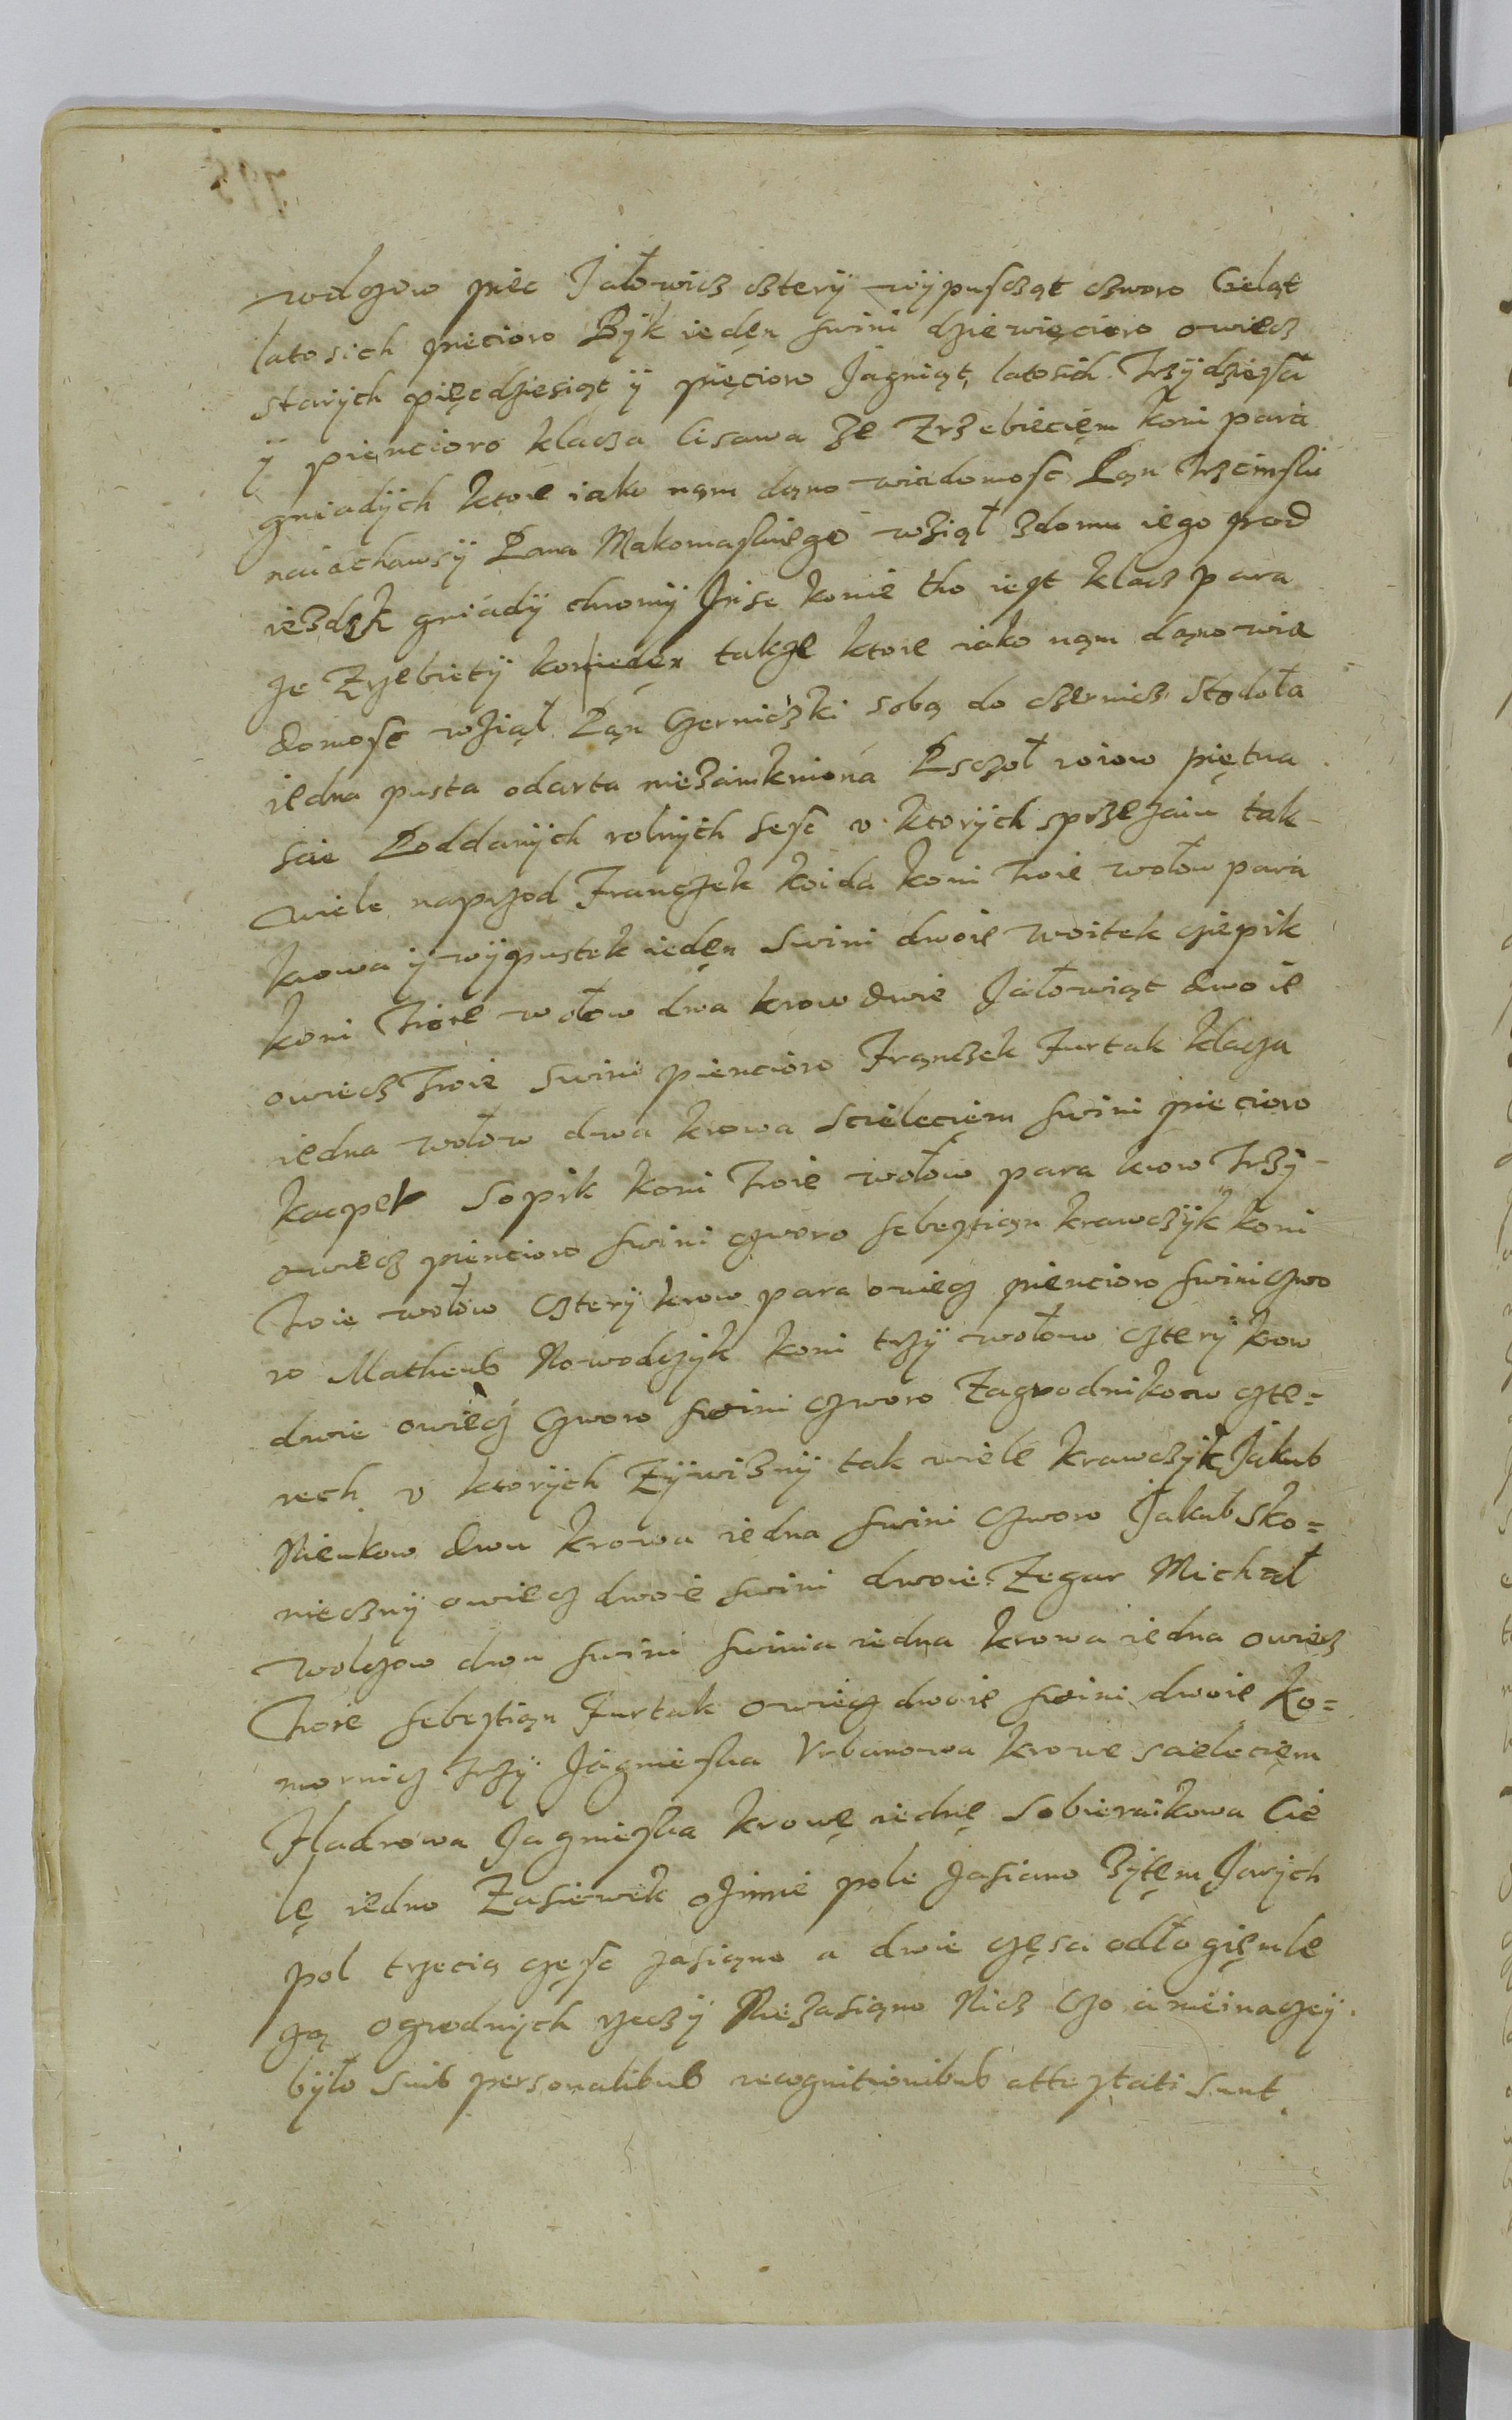 wolczow piec Jałowicz cztery wypuscząt czworo Cieląt
latosich piecioro Byk ieden swini dziewięcioro owiecz
starych pięcdziesiąt y pięcioro Jagniąt latosich Trzydziesci
y piencioro klacza lisawa ze Zrzebieciem koni para
gniadych ktore iako nąm dąno wiadomosc Pąn Trzcinski
naiachawsy Pana Makomaskiego wziął zdomu iego pod
iezdek gniady chromy Inse konie tho iest klacz para
ze Zrzebiety kon ieden takze ktore iako nąm dąno wia
domosc wziął Pąn Czerniczki sobą do czernicz stodoła
iedna pusta odarta niezamkniona Psczoł roiow piętna
scie Poddanych rolnych sesc v ktorych sprzezaiu tak
wiele naprzod Franczek koida koni troie wołow para
krowa y wypustek ieden swini dwoie woitek cziepik
koni troie wołow dwa krow dwie Jałowiąt dwoie
owiecz troie swini piencioro Frączek Furtak klacza
iedna wołow dwa krowa scieleciem swini piecioro
kacper Sopik koni troie wołow para krow trzy
owiecz piencioro swini czworo sebestian krawczyk koni
troie wołow cztery krow para owiecz piencioro swini czwo
ro Matheus Nowodczyk koni trzy wołow cztery krow
dwie owiecz czworo swini czworo Zagrodnikow czte=
rech v ktorych Zywizny tak wiele krawczyk Jakub
Nieukow dwu krowa iedna swini czworo Jakub sko=
nieczny owiecz dwoie swini dwoie Zegar Michał
wolczow dwu swini swinia iedna krowa iedna owiecz
troie sebestian Furtak owiecz dwoie swini dwoie ko=
mornicz trzy Jagnieska Vrbanowa krowe scieleciem
Fladrowa Jagnieska krowę iednę sobieraikowa Cie
lę iedno Zasiewek ozimie pole zasiano Zytem Jarych
pol trzecią częsc zasiąno a dwie częsci odłogiem le
zą ogrodnych rzeczy Niezasiąno Nicz czo anieinaczey
było suis personalibus recognitionibus attestati sunt